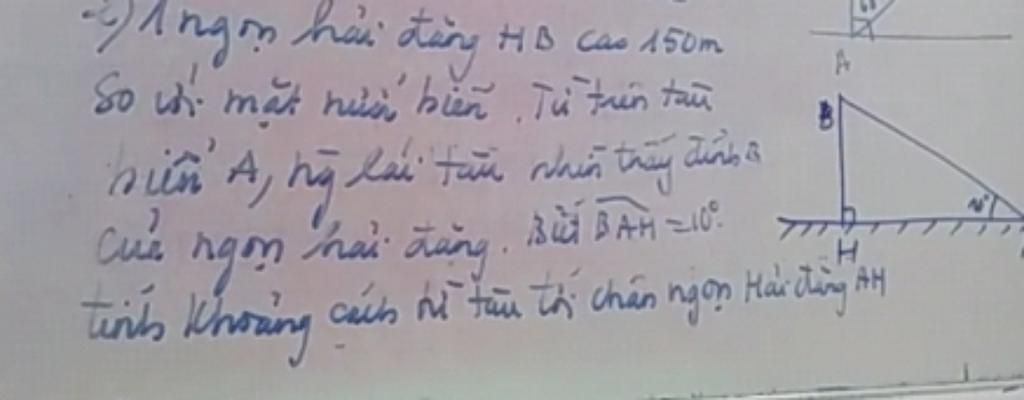 1 ngọn hải đăng HB cao 150m
So với mặt nước biển. Từ trên tàu
biển A, ng lái tàu nhìn thấy đỉnh B
của ngọn hải đăng. Biết BAH = 10°.
tính khoảng cách từ tàu tới chân ngọn Hải đăng AH
A
B
H